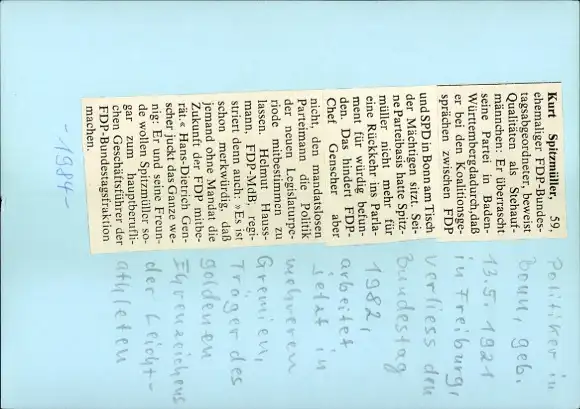 Kurt Spitzmüller, 59,
ehemaliger FDP-Bundes-
tagsabgeordneter, beweist
Qualitäten als Stehauf-
männchen: Er überrascht
seine Partei in Baden-
Württemberg dadurch, daß
er bei den Koalitionsge-
sprächen zwischen FDP
und SPD in Bonn am Tisch
der Mächtigen sitzt. Sei-
ne Parteibasis hatte Spitz-
müller nicht mehr für
eine Rückkehr ins Parla-
ment für würdig befun-
den. Das hindert FDP-
Chef Genscher aber
nicht, den mandatslosen
Parteimann die Politik
der neuen Legislaturpe-
riode mitbestimmen zu
lassen. Helmut Hauss-
mann, FDP-MdB, regi-
striert denn auch: » Es ist
schon merkwürdig, daß
jemand ohne Mandat die
Zukunft der FDP mitbe-
rät.« Hans-Dietrich Gen-
scher juckt das Ganze we-
nig: Er und seine Freun-
de wollen Spitzmüller so-
gar zum hauptberufli-
chen Geschäftsführer der
FDP-Bundestagsfraktion
machen.
-1984-
Politiker in
Bonn, geb.
13.5.1921
in Freiburg,
verliess den
Bundestag
1982,
arbeitet
jetzt in
mehreren
Gremien,
Träger des
goldenen
Ehrenzeichens
der Leicht-
athleten